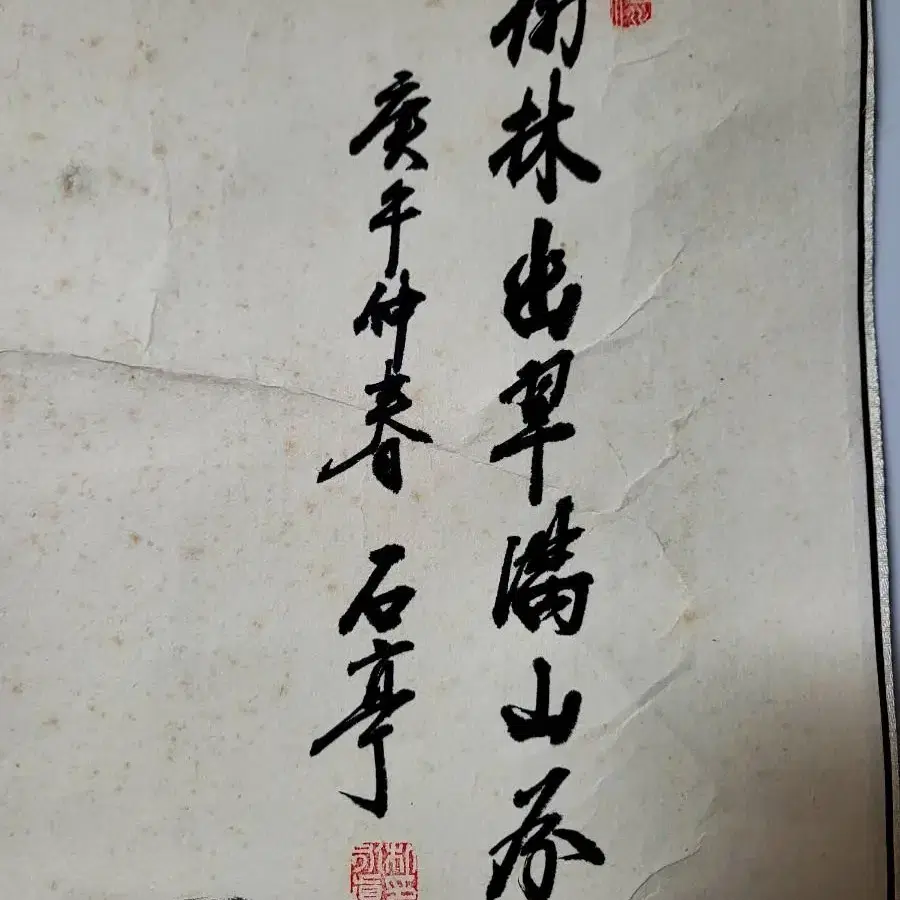 樹林幽翠滿山谷
庚午仲春 石亭